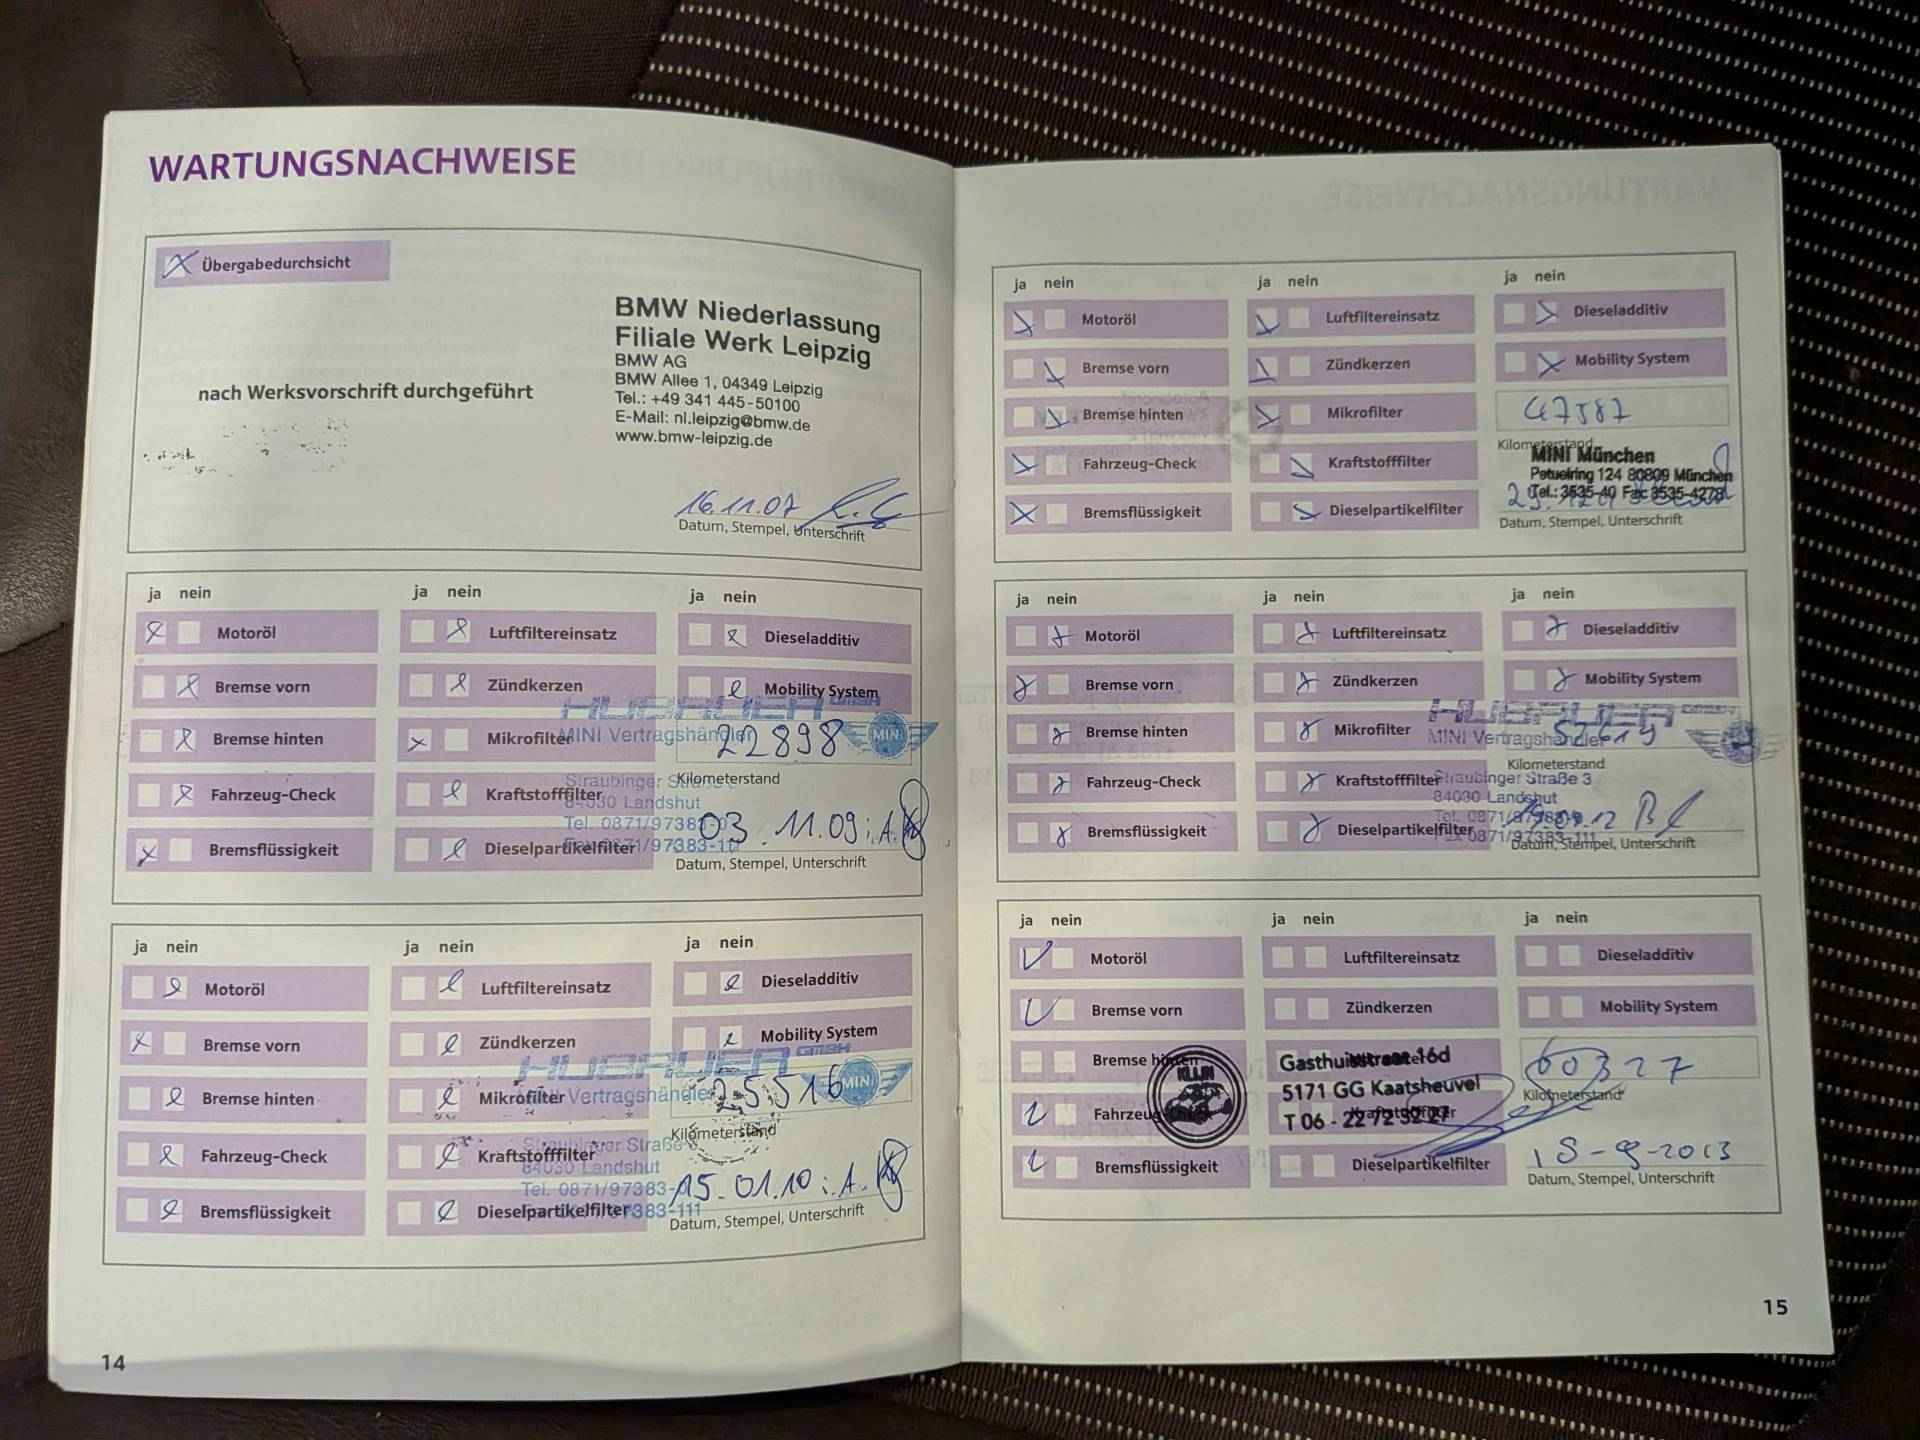 WARTUNGSNACHWEISE
Übergabedurchsicht
nach Werksvorschrift durchgeführt
BMW Niederlassung
Filiale Werk Leipzig
BMW AG
BMW Allee 1, 04349 Leipzig
Tel.: +49 341 445-50100
E-Mail: nl.leipzig@bmw.de
www.bmw-leipzig.de
16.11.07
Datum, Stempel, Unterschrift
ja nein ja nein ja nein
Motoröl Luftfiltereinsatz Dieseladditiv
Bremse vorn Zündkerzen Mobility System
HUBAUER GMBH
MINI Vertragshändler
MINI
Bremse hinten Mikrofilter 22898
Kilometerstand
Straubinger Straße
84030 Landshut
Tel. 0871/97383-0
Fahrzeug-Check Kraftstofffilter
03.11.09 i.A.
Bremsflüssigkeit Dieselpartikelfilter
Datum, Stempel, Unterschrift
ja nein ja nein ja nein
Motoröl Luftfiltereinsatz Dieseladditiv
Bremse vorn Zündkerzen Mobility System
HUBAUER GMBH
Vertragshändler
MINI
Bremse hinten Mikrofilter 25516
Kilometerstand
Straubinger Straße
84030 Landshut
Tel. 0871/97383-
Fahrzeug-Check Kraftstofffilter
15.01.10 i.A.
Bremsflüssigkeit Dieselpartikelfilter
Datum, Stempel, Unterschrift
14
ja nein ja nein ja nein
Motoröl Luftfiltereinsatz Dieseladditiv
Bremse vorn Zündkerzen Mobility System
Bremse hinten Mikrofilter 47587
Kilometerstand
MINI München
Petuelring 124 80809 München
Tel.: 3535-40 Fax 3535-4278
Fahrzeug-Check Kraftstofffilter
Bremsflüssigkeit Dieselpartikelfilter
Datum, Stempel, Unterschrift
ja nein ja nein ja nein
Motoröl Luftfiltereinsatz Dieseladditiv
Bremse vorn Zündkerzen Mobility System
HUBAUER GMBH
MINI Vertragshändler
Bremse hinten Mikrofilter
Kilometerstand
Straubinger Straße 3
84030 Landshut
Fahrzeug-Check Kraftstofffilter
Bremsflüssigkeit Dieselpartikelfilter
Datum, Stempel, Unterschrift
ja nein ja nein ja nein
Motoröl Luftfiltereinsatz Dieseladditiv
Bremse vorn Zündkerzen Mobility System
Bremse hinten 60327
Kilometerstand
KLIJN
Gasthuisstraat 16d
5171 GG Kaatsheuvel
T 06 - 22 72 32 27
Fahrzeug-Check Kraftstofffilter
18-9-2013
Bremsflüssigkeit Dieselpartikelfilter
Datum, Stempel, Unterschrift
15